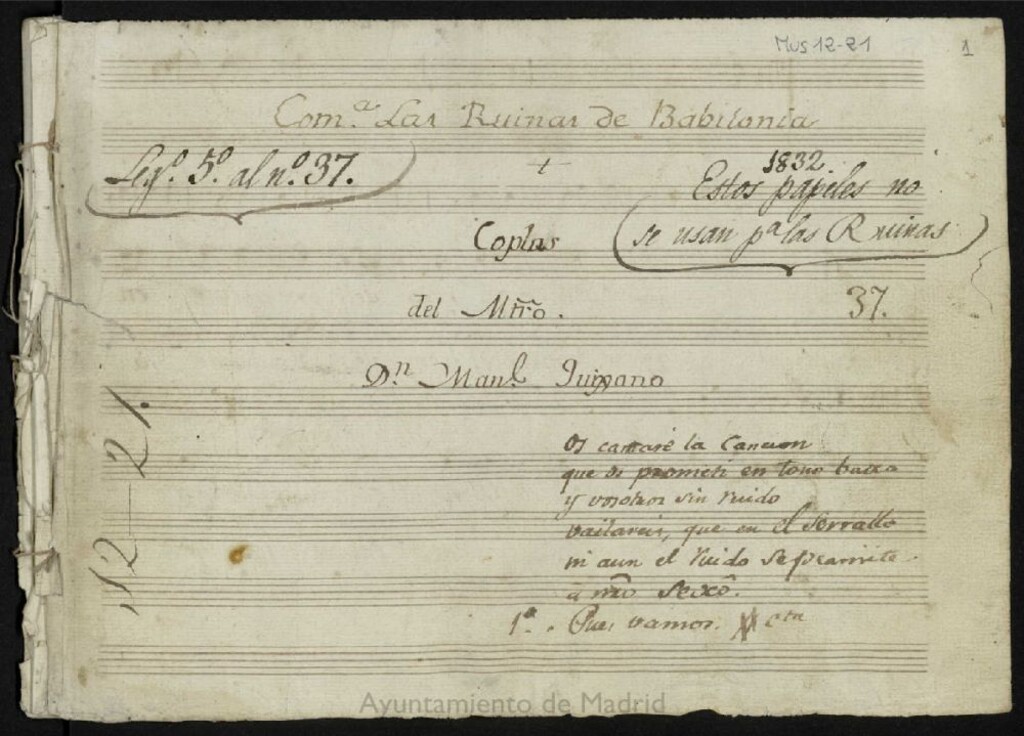 Mus 12-21
1
Com.ª Las Ruinas de Babilonia
Leg.º 5.º al n.º 37.
+
1832.
Estos papeles no
se usan p.ª las Ruinas
Coplas
del Mtrō.
37.
D.n Man.l Quijano
12-21.
Os cantaré la Cancion
que os prometi en tono baxo
y vosotros sin ruido
vailareis, que en el serrallo
ni aun el ruido se permite
a nrō sexô.
1.ª. Pues vamos. etta
Ayuntamiento de Madrid